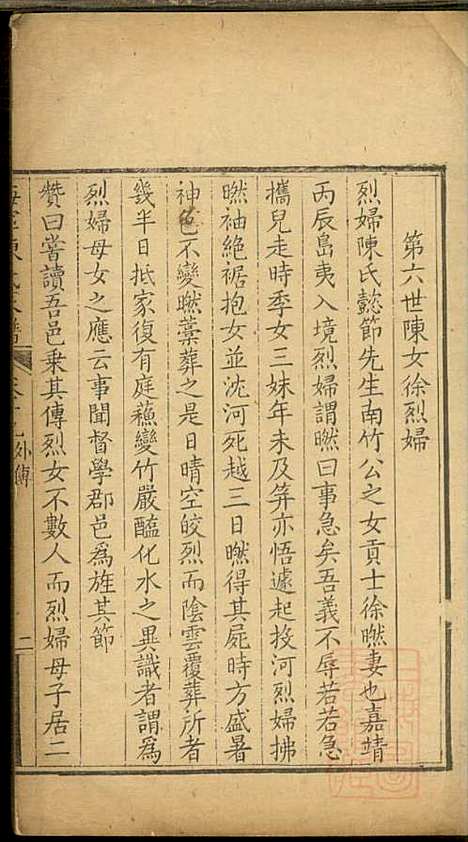 第六世陳女徐烈婦
烈婦陳氏懿節先生南竹公之女貢士徐㬗妻也嘉靖
丙辰島夷入境烈婦謂㬗曰事急矣吾義不辱若若急
攜兒走時季女三妹年未及笄亦悟遽起投河烈婦拂
㬗袖絕裾抱女並沈河死越三日㬗得其屍時方盛暑
神色不變㬗藁葬之是日晴空皎烈而陰雲覆葬所者
幾半日抵家復有庭蘓變竹嚴醯化水之異識者謂為
烈婦母女之應云事聞督學郡邑為旌其節
贊曰嘗讀吾邑乘其傳烈女不數人而烈婦母子居二
外傳
二